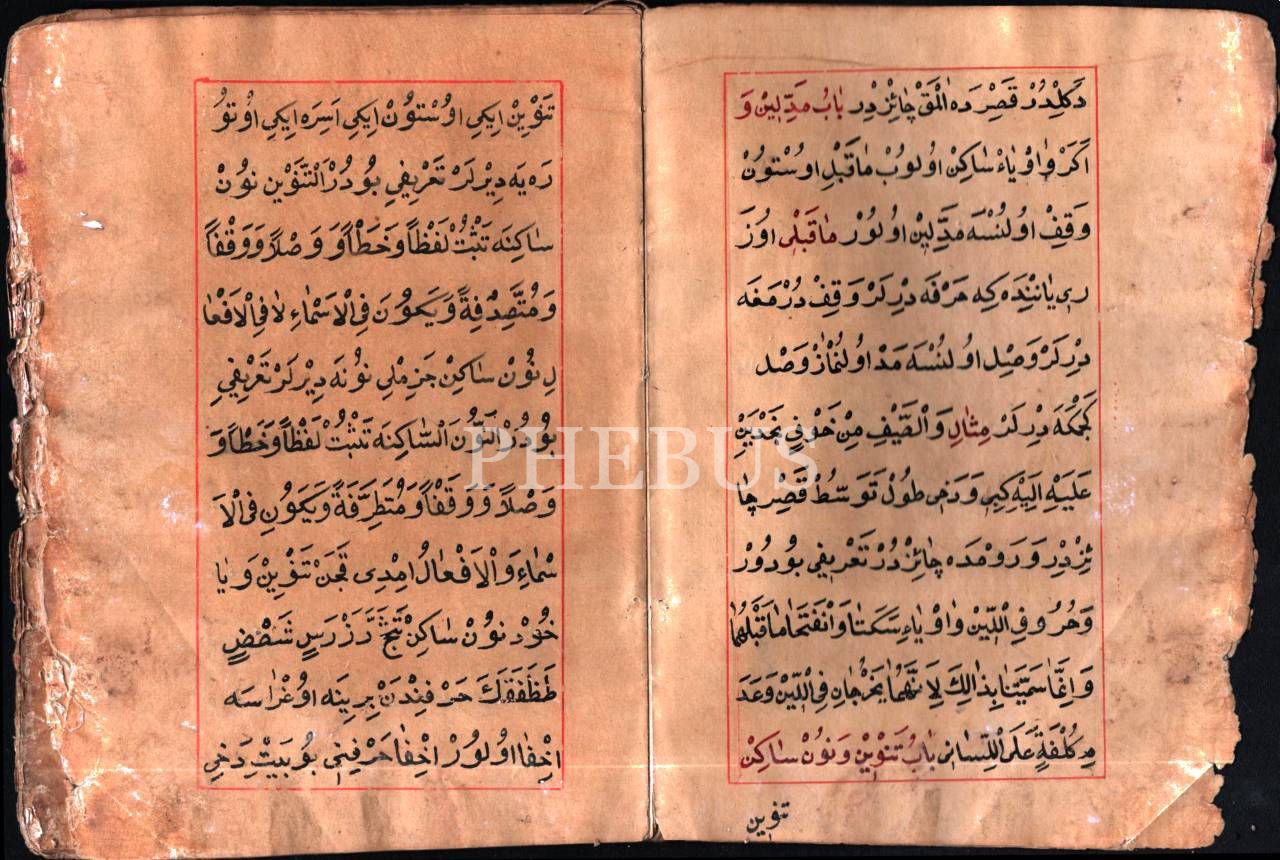 دَكِلْدُرْ قَصْر دَه اُلْمَقْ جَائِزْدِرْ بَابُ مَدِّلِيْنْ وَ
اَكَرْ وَاوْ يَاءْ سَاكِنْ اُولُوبْ مَاقَبْلِ اوُسْتوُنْ
وَقِفْ اوُلُنْسَه مَدِّلِيْن اوُلوُرْ مَاقَبْلِى اوُزَ
رِى يَانِنْدَه كِه حَرْفَه دِرْلَرْ وَقِفْ دُرْمَغَه
دِرْلَرْ وَصِل اوُلُنْسَه مَدْ اوُلُنْمَازْ وَصْل
كَچْمَكَه دِرْلَرْ مِثَالِ وَالصَّيْفِ مِنْ خَوْفٍ نَجْدَيْنِ
عَلَيْهِ اِلَيْهِ كِبِى وَدَخِى طُولْ تَوَسُّطْ قَصْر جَا
ئِزْدِرْ وَرَوْمْدَه جَائِزْدُرْ تَعْرِيفِى بُودُوْرْ
وَحُرُوفِ اللِّيْن وَاوْ يَاءِ سَكَنَتَا وَانْفَتَحَا مَاقَبْلَهُمَا
وَاِنَّمَا سَمَيَّتَا بِذَالِكَ لِاَنَّهُمَا يَخْرُجَانِ فِى اللِّيْن وَعَدَ
مِ كُلْفَةٍ عَلَى اللِّسَانِ بَابُ تَنْوِيْن وَنوُنْ سَاكِنْ
تنوين
تَنْوِيْن اِيكِى اوُسْتوُنْ اِيكِى اَسَرَه اِيكِى اوُتوُ
رَه يَه دِيْرلَرْ تَعْرِيفِى بُودُرْ اَلتَّنْوِيْن نوُنْ
سَاكِنَه تَثْبُتُ لَفْظاً وَخَطاً وَ وَصْلاً وَوَقْفاً
وَمُتَّصِدْفِةً وَيَكوُنَ فِى الْاَسْمَاءِ لَا فِى الْاَفْعَا
لِ نوُنْ سَاكِنْ جَزِمْلِى نوُنَه دِيْرلَرْ تَعْرِيفِى
بوُدُرْ اَلنّوُنَ السَّاكِنَة تَثْبُتُ لَفْظاً وَخَطاً وَ
وَصْلاً وَوَقْفاً وَمُتَطَرِّفَةً وَيَكوُنِ فِى الْاَ
سْمَاءِ وَالْاَفْعَالْ اِمْدِى قَچَنْ تَنْوِيْن وَيَا
خُودْ نوُنْ سَاكِنْ تَثَجَ دَذَزَرْسٍ شَصَضٍ
طَظَفَقَكَ حَرْفِنْدَنْ بِرِينَه اوُغْرَاسَه
اِخْفَا اوُلوُرْ اِخْفَا حَرْفِنِى بُو بَيْتْ دَخِى
PHEBUS